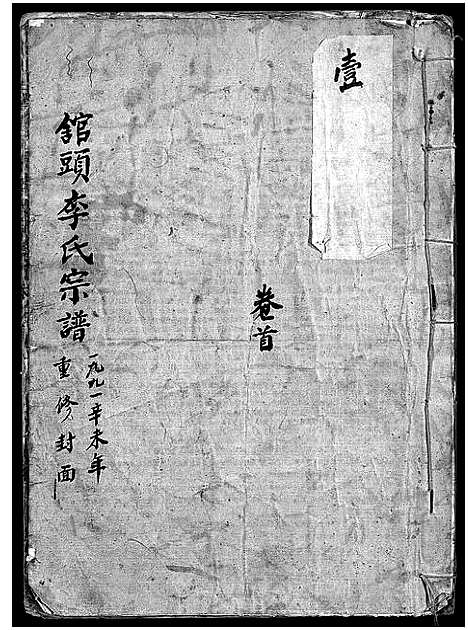 壹
卷首
舘頭李氏宗譜
一九九一辛未年
重修封面